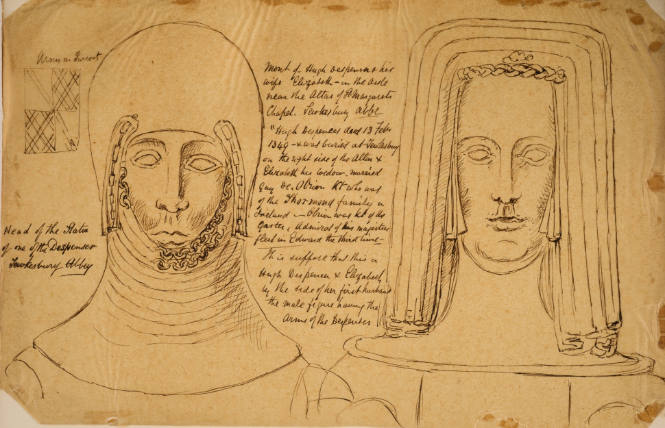 Arms on Surcoat
Mont of Hugh Despenser & his
wife Elizabeth - in the aisle
near the Altar of St Margarets
Chapel. Tewkesbury Abbe
"Hugh Despencer died 13 Feby
1349 - & was buried at Tewkesbury
on the right side of the Altar &
Elizabeth his widow, married
Guy De. O'Brion Kt who was
of the Thormond families in
Ireland - O'Brion was Kt of the
Garter, Admiral of his majesties
fleet in Edward the third time -
This is suppose that this is
Hugh Despencer & Elizabeth
by the side of her first husband
the male figure having the
Arms of the Despenser
Head of the Statue
of one of the Despenser
Tewkesbury Abbey